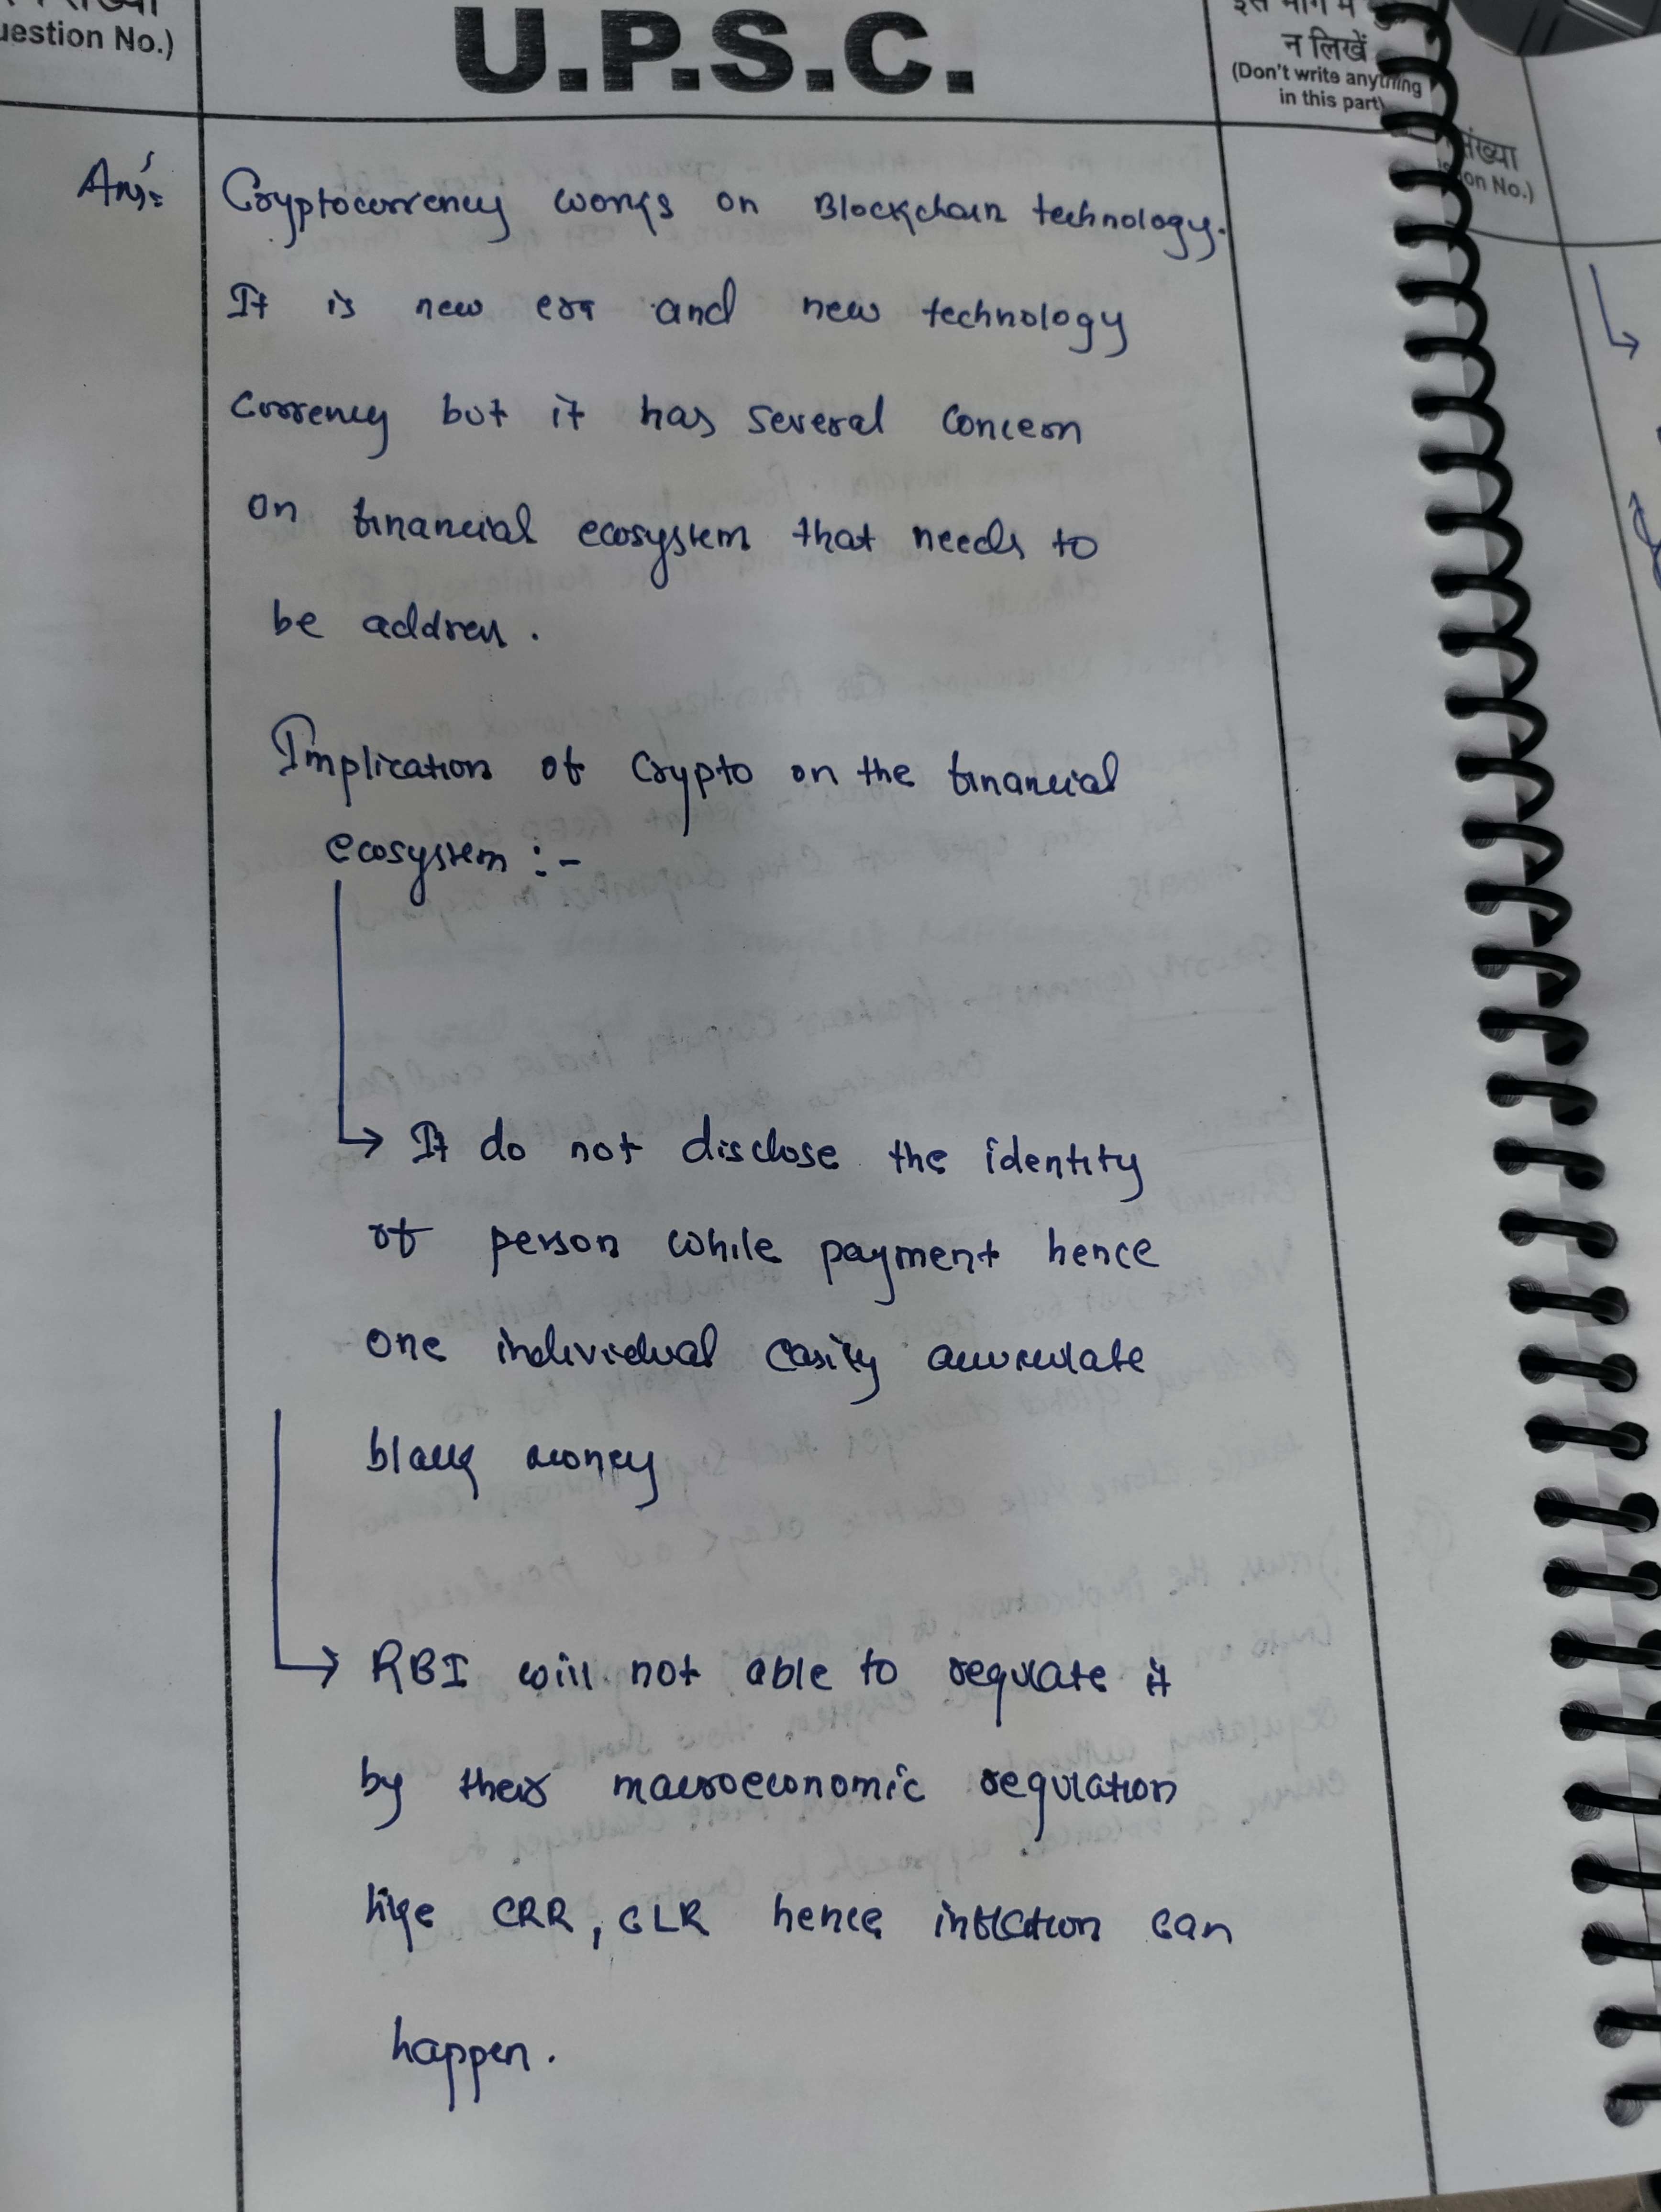 uestion No.)
U.P.S.C.
इस भाग में कुछ
न लिखें
(Don't write anything
in this part)
संख्या
on No.)
Ans:
Cryptocurrency works on Blockchain technology.
It is new era and new technology
currency but it has several concern
on financial ecosystem that needs to
be address.
Implication of Crypto on the financial
ecosystem :-
→ It do not disclose the identity
of person while payment hence
one individual easily accumulate
black money
→ RBI will not able to regulate it
by their macroeconomic regulation
like CRR, SLR hence inflation can
happen.